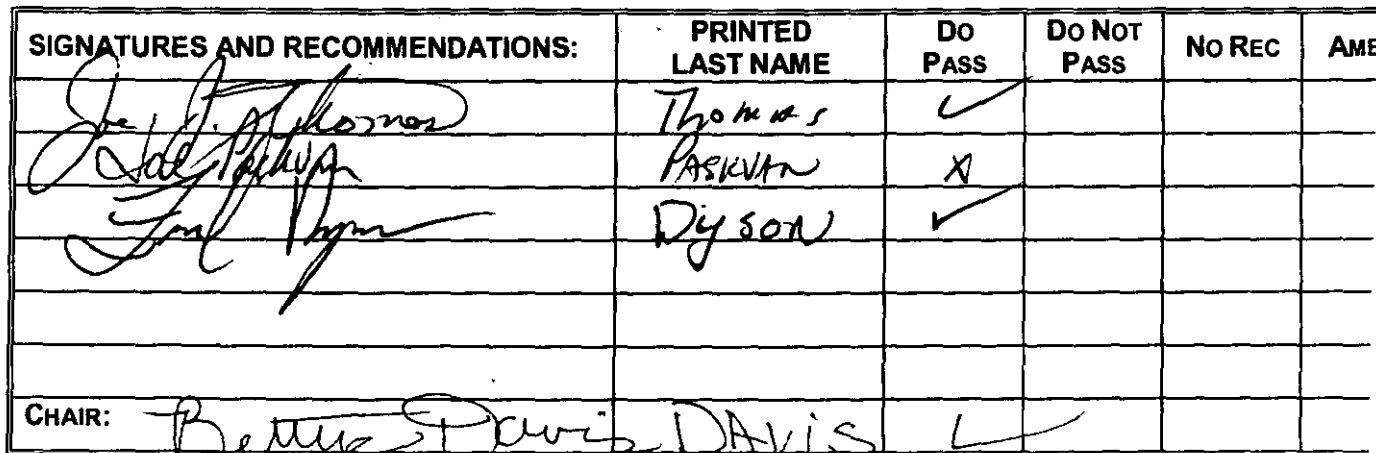 SIGNATURES AND RECOMMENDATIONS: PRINTED LAST NAME DO PASS DO NOT PASS NO REC AME
Joe J. Thomas Thomas ✓
Joe Paskvan PASKVAN X
Dyson ✓
CHAIR: Bettye Davis DAVIS ✓